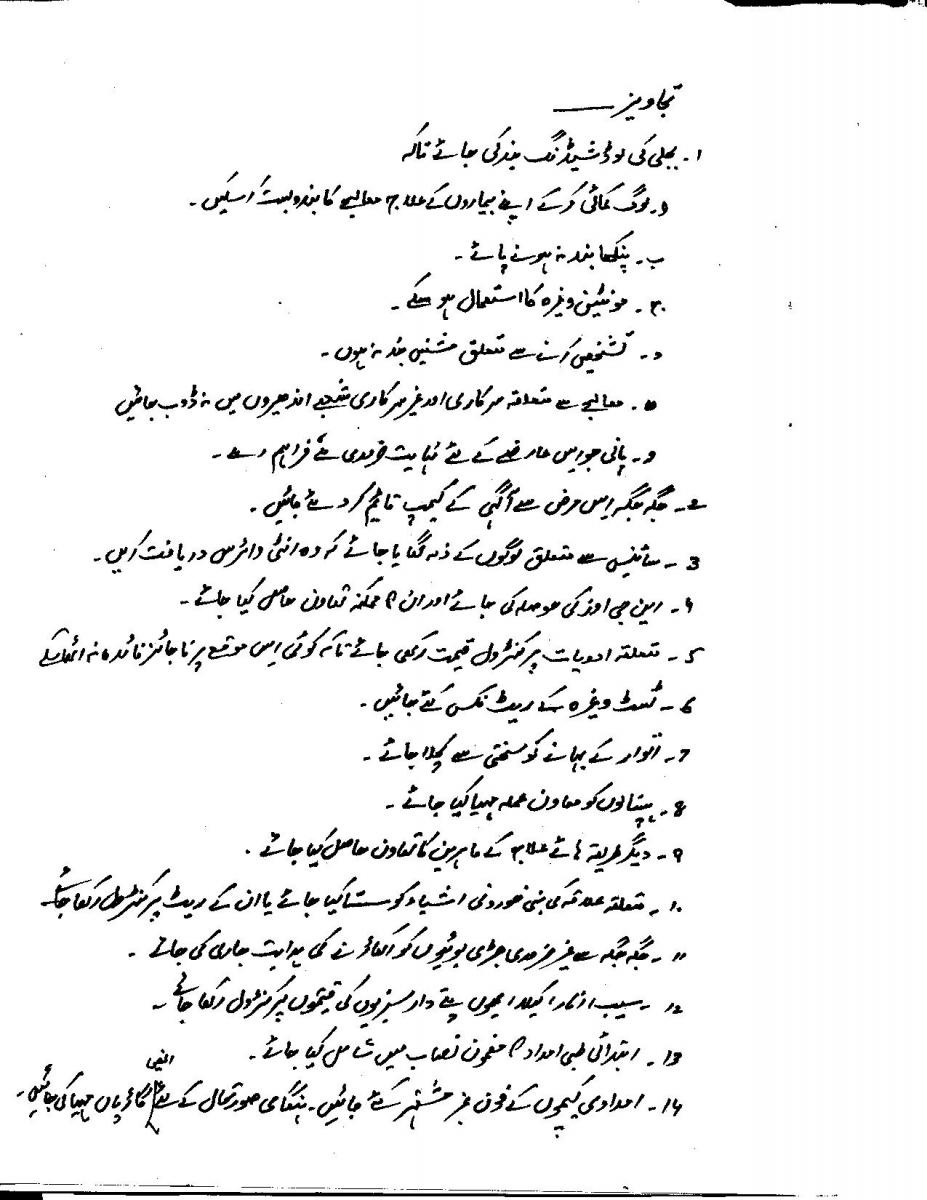 تجاویز
۱۔ بجلی کی لوڈ شیڈنگ بند کی جائے تاکہ
ا۔ لوگ کمائی کر کے اپنے بیماروں کے علاج معالجے کا بندوبست کر سکیں۔
ب۔ پنکھا بند نہ ہونے پائے۔
ج۔ وغیرہ کا استعمال ہو سکے۔
د۔ تشخیص کرنے سے متعلق مشینیں بند نہ ہوں۔
ہ۔ معالجے سے متعلقہ سرکاری اور غیر سرکاری شعبے اندھیروں میں نہ ڈوب جائیں
و۔ پانی جو اس عارضے کے لئے نہایت ضروری ہے فراہم رہے۔
۲۔ جگہ جگہ اس مرض سے آگہی کے کیمپ قائم کر دئے جائیں۔
۳۔ سائنس سے متعلق لوگوں کے ذمہ لگایا جائے کہ وہ انٹی وائرس دریافت کریں۔
۴۔ این جی اوز کی حوصلہ کی جائے اور ان کا ممکنہ تعاون حاصل کیا جائے۔
۵۔ متعلقہ ادویات پر کنٹرول قیمت رکھی جائے تاکہ کوئی اس موقع پر ناجائز فائدہ نہ اٹھا سکے
۶۔ ٹیسٹ وغیرہ کے ریٹ فکس کئے جائیں۔
۷۔ اتوار کے بہانے کو سختی سے کچلا جائے۔
۸۔ ہسپتالوں کو معاون عملہ مہیا کیا جائے۔
۹۔ دیگر طریقہ ہائے علاج کے ماہرین کا تعاون حاصل کیا جائے۔
۱۰۔ متعلقہ علاقہ کی بنی خوردونی اشیاء کو سستا کیا جائے یا ان کے ریٹ پر کنٹرول رکھا جائے۔
۱۱۔ جگہ جگہ سے غیر ضروری جڑی بوٹیوں کو اکھاڑنے کی ہدایت جاری کی جائے۔
۱۲۔ سیب انار اکیلا لیموں پتے دار سبزیوں کی قیمتوں پر کنٹرول رکھا جائے۔
۱۳۔ ابتدائی طبی امداد کا مضمون نصاب میں شامل کیا جائے۔
۱۴۔ امدادی کیمپوں کے فون نمبر مشتہر کئے جائیں۔ ہنگامی صورتحال کے لئے انہیں گاڑیاں مہیا کی جائیں۔